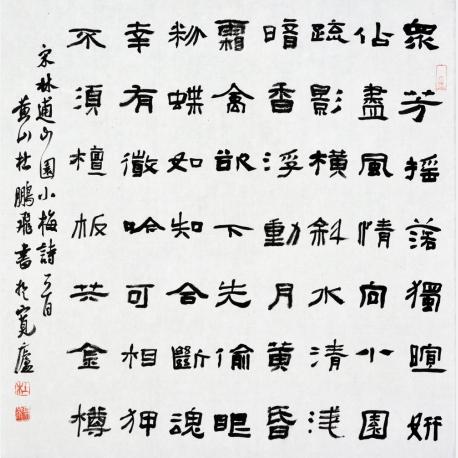 眾芳摇落獨暄妍
佔盡風情向小園
疏影橫斜水清淺
暗香浮動月黄昏
霜禽欲下先偷眼
粉蝶如知合斷魂
幸有微吟可相狎
不須檀板共金樽
宋林逋山園小梅詩一首
黄山杜鵬飛書於寬廬